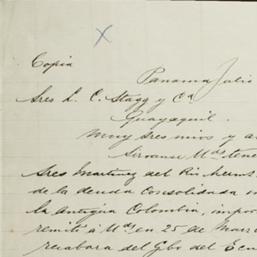 Copia
Panama Julio
Sres L. C. Stagg y Ca
Guayaquil.
Muy Sres mios y a
Sirvanse Uds tene
Sres Martinez del Rio Hermi
de la deuda Consolidada
la Antigua Colombia, impor
remiti á Uds en 25 de Marz
recabara del Gbo del Ecu